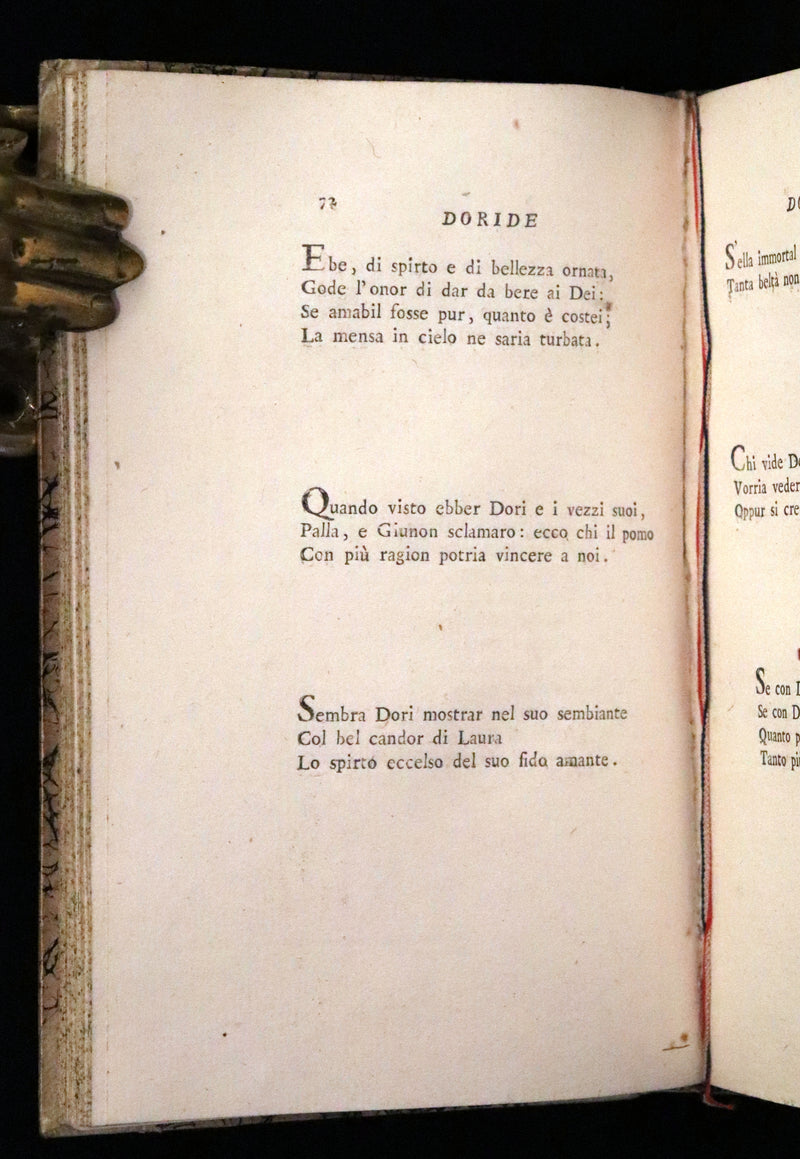 72
DORIDE
Ebe, di spirto e di bellezza ornata,
Gode l'onor di dar da bere ai Dei:
Se amabil fosse pur, quanto è costei;
La mensa in cielo ne saria turbata.
Quando visto ebber Dori e i vezzi suoi,
Palla, e Giunon sclamaro: ecco chi il pomo
Con più ragion potria vincere a noi.
Sembra Dori mostrar nel suo sembiante
Col bel candor di Laura
Lo spirto eccelso del suo fido amante.
S'ella immortal
Tanta beltà non
Chi vide
Vorria veder
Oppur si cre
Se con
Se con D
Quanto p
Tanto più